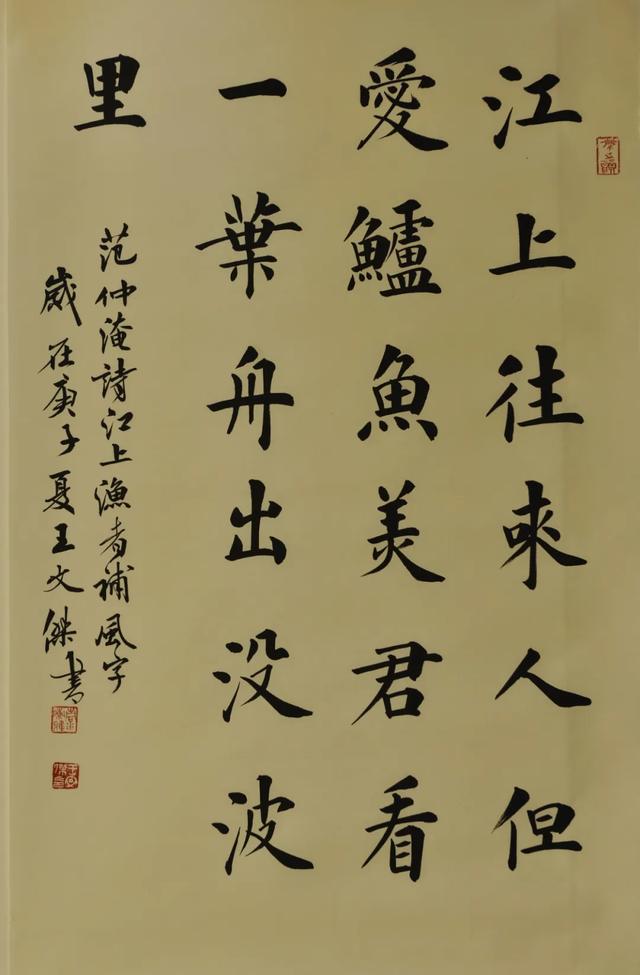 江上往來人但
愛鱸魚美君看
一葉舟出没波
里
范仲淹詩江上漁者補風字
歲在庚子夏王文傑書